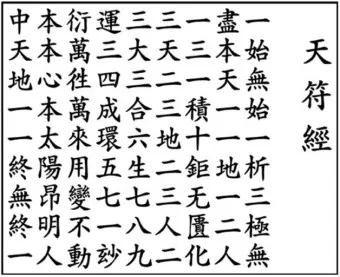 天符經
一始無始一析三極無
盡本天一一地一二人
一三一積十鉅无匱化
三天二三地二三人二
三大三合六生七八九
運三四成環五七一玅
衍萬徃萬來用變不動
本本心本太陽昂明人
中天地一一終無終一